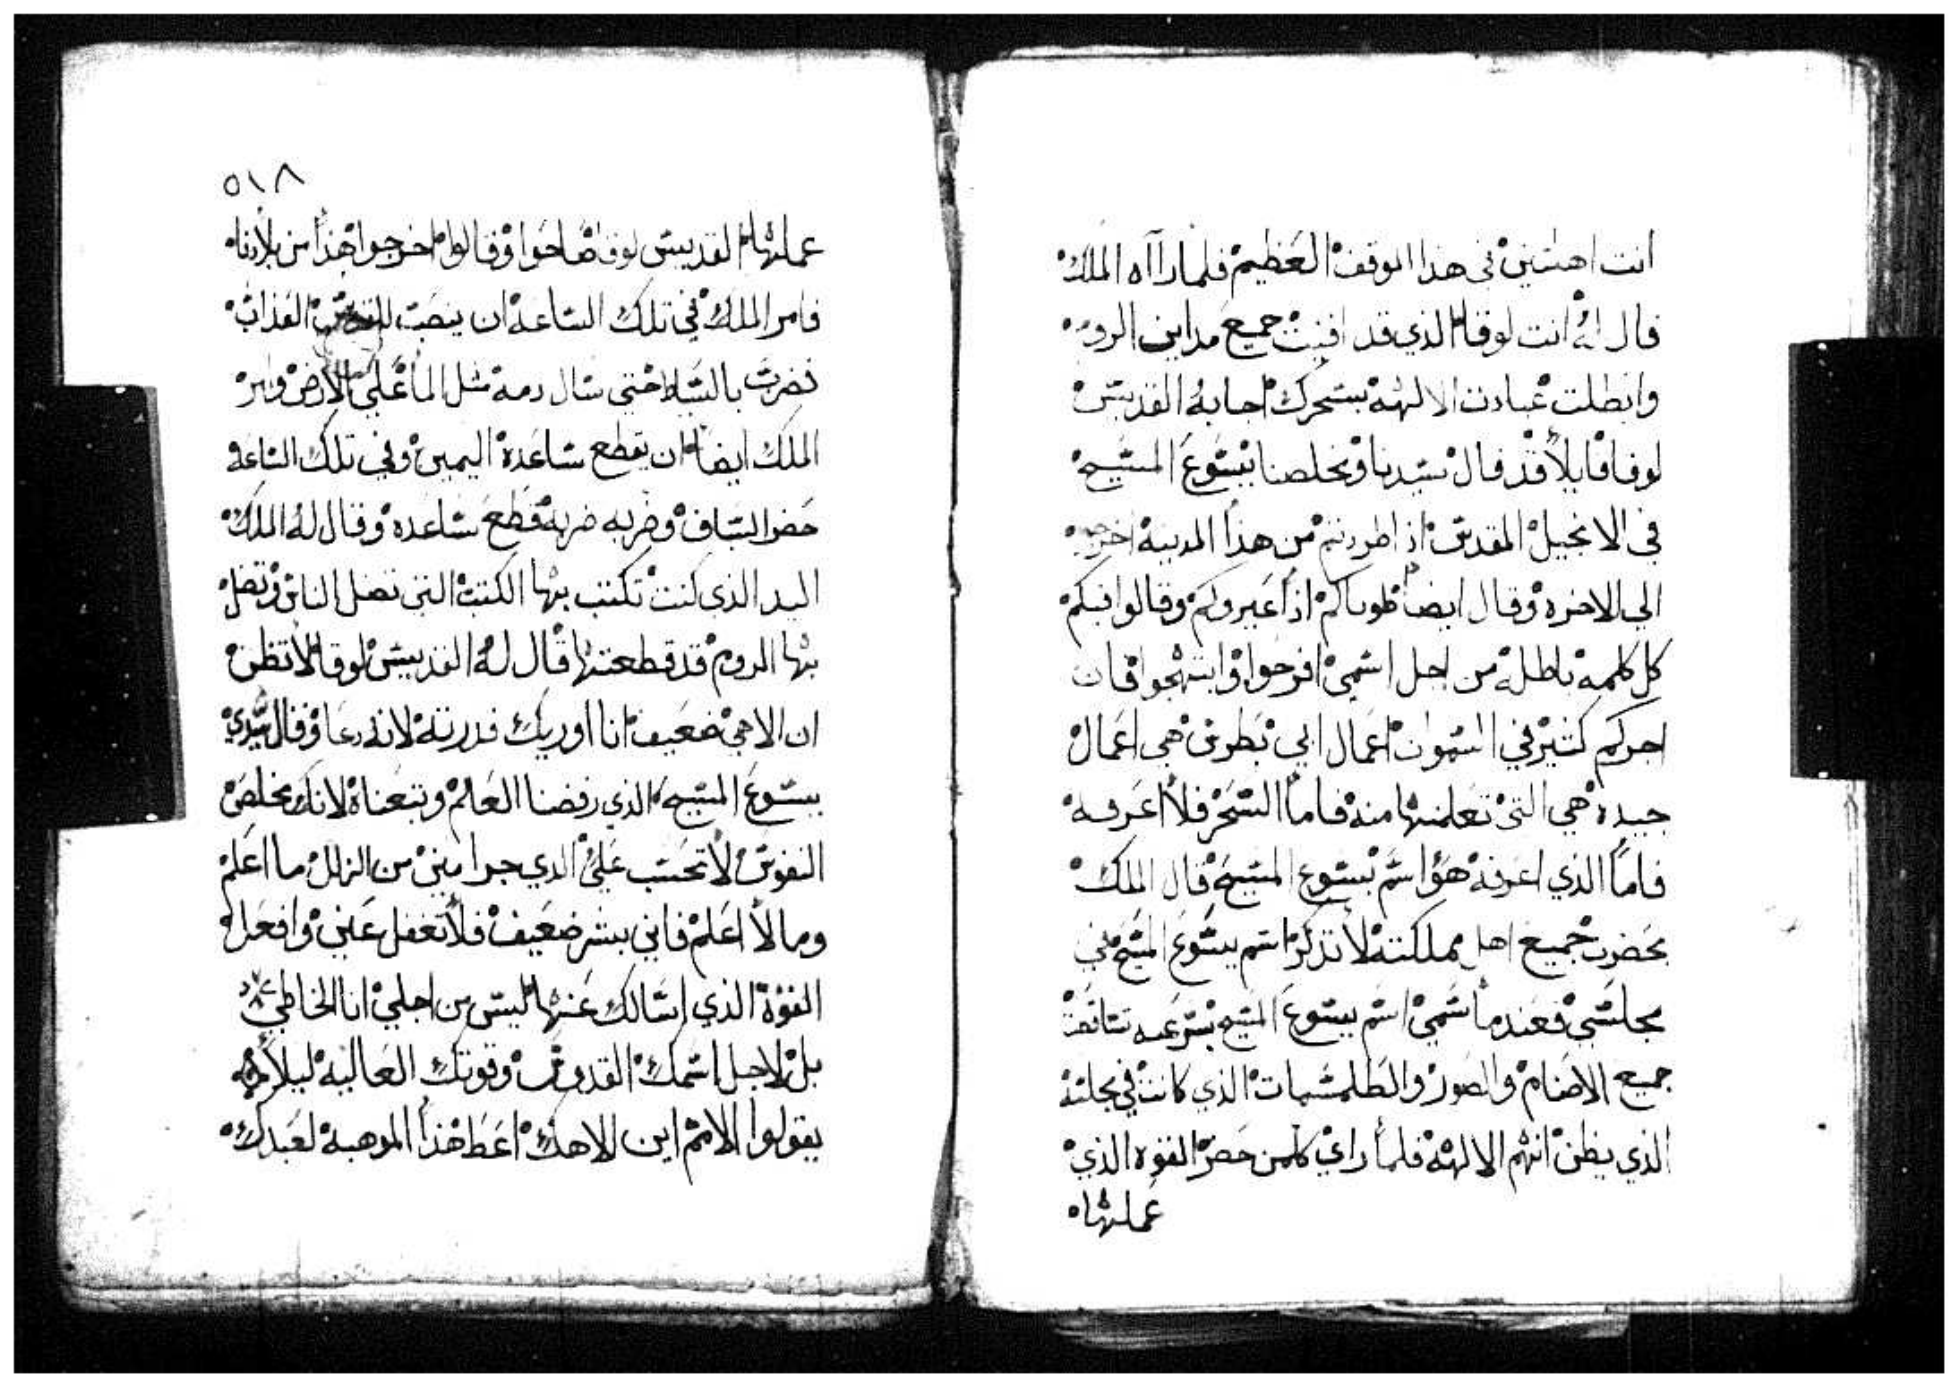 انت اهنتني في هذا الموقف العظيم فلما راآه الملك
قال له انت لوقا الذي قد افنيت جميع مداين الروم
وابطلت عبادت الالهه بسحرك اجابه القديس
لوقا قايلاً قد قال سيدنا ومخلصنا يسوع المسيح
في الانجيل المقدس اذا طردتم من هذا المدينة اخرجوا
الي الاخره وقال ايضاً طوباكم اذا عيروكم وقالوا فيكم
كل كلمه باطلة من اجل اسمي افرحوا وابتهجوا فان
اجركم كثير في السموات اعمال ابي بطرس هي اعمال
جيده هي التي تعلمتها منه فاما السحر فلا اعرفه
فاما الذي اعرفه هوا اسم يسوع المسيح قال الملك
بحضرت جميع اهل مملكته لا تذكر اسم يسوع المسيح في
مجلسي فعندما سمي اسم يسوع المسيح بسرعه تساقطت
جميع الاصنام والصور والطلمسات الذي كانت في مجلسه
الذي يظن انهم الالهه فلما راي كلمن حضر القوه الذي
عملها
٥١٨
عملها القديس لوقا صاحوا وقالوا اخرجوا هذا من بلادنا
فامر الملك في تلك الساعه ان ينصب للقديس العذاب
فضرب بالسياط حتي سال دمه مثل الماء علي الارض وامر
الملك ايضا ان يقطع ساعده اليمين وفي تلك الساعه
حضر السياف وضربه ضربه قطع ساعده وقال له الملك
اليد الذي كنت تكتب بها الكتب التي تضل الناس وتضل
بها الروم قد قطعتها قال له القديس لوقا لا تظن
ان الاهي ضعيف انا اوريك قدرته لانه دعا وقال سيدي
يسوع المسيح الذي رفضنا العالم وتبعناه لانك مخلص
النفوس لا تحسب علي الذي جرا مني من الزلل ما اعلم
وما لا اعلم فاني بشر ضعيف فلا تغفل عني وافعل
القوة الذي اسالك عنها ليس من اجلي انا الخاطي
بل لاجل اسمك القدوس وقوتك العاليه ليلا
يقولوا الامم اين الاهك اعط هذا الموهبة لعبدك